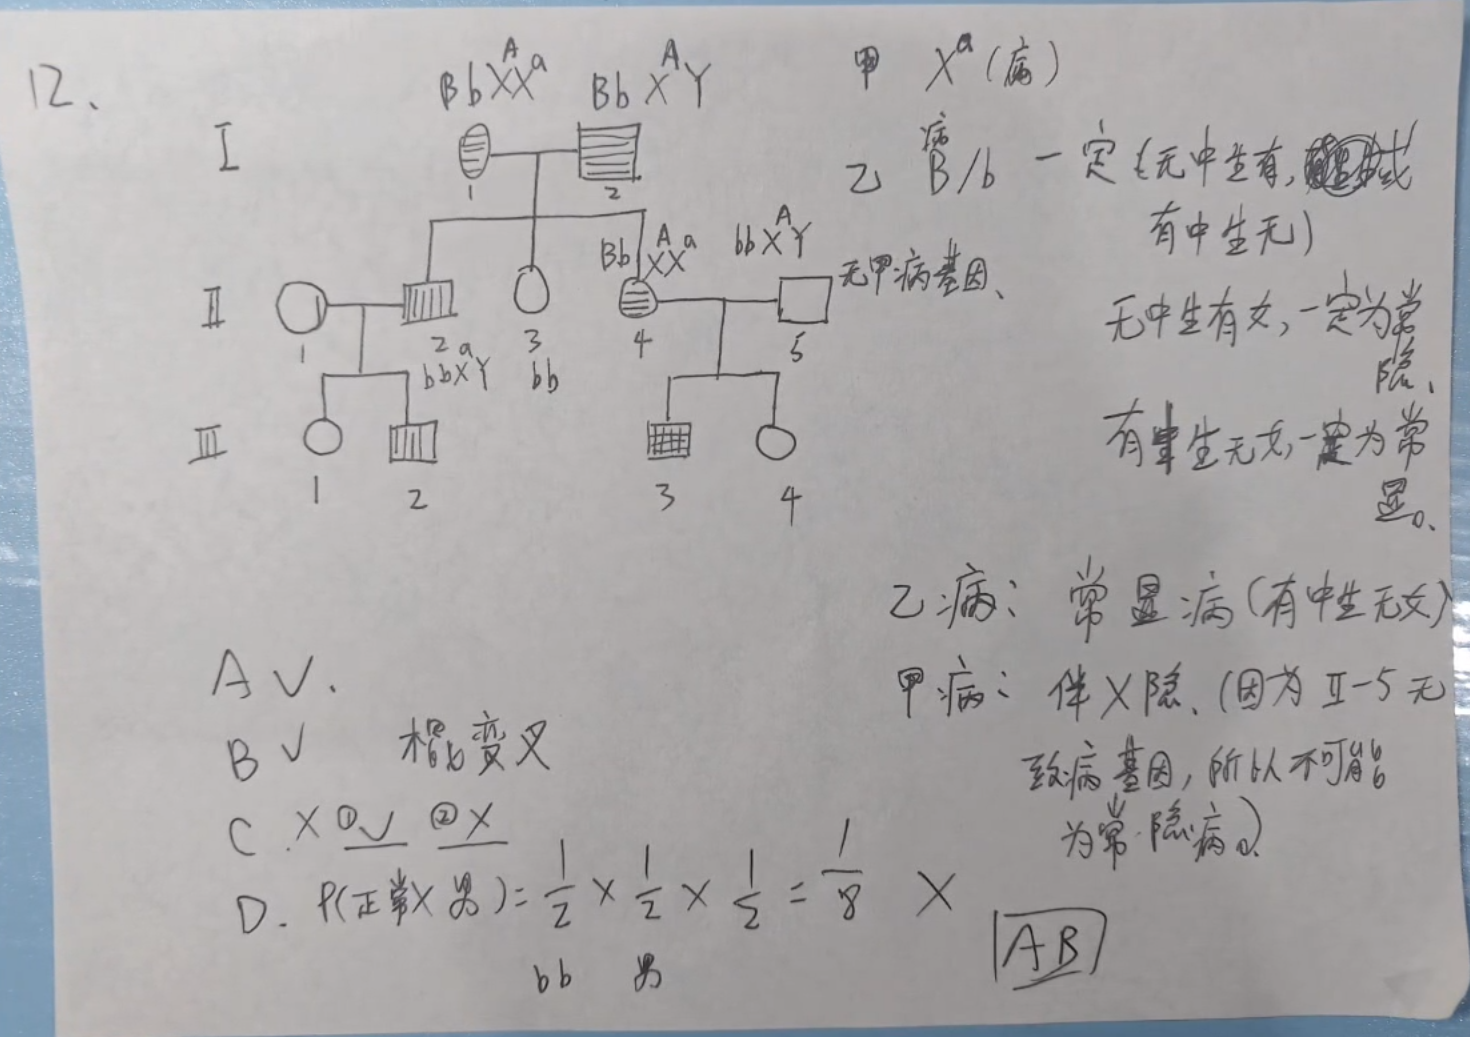 12、
BbXᴬXᵃ BbXᴬY
I
1 2
BbXᴬXᵃ bbXᴬY
II
1 2 3 4 5
bbXᵃY bb
无甲病基因、
III
1 2 3 4
甲 Xᵃ(病)
病
乙 B/b 一定(无中生有, 或
有中生无)
无中生有女,一定为常
隐、
有中生无女,一定为常
显。
乙病: 常显病(有中生无女)
甲病: 伴X隐、(因为II-5无
致病基因,所以不可能
为常隐病。)
A √.
B √ 楷b变叉
C. × ①√ ②×
D. P(正常×男)= 1/2 × 1/2 × 1/2 = 1/8 ×
bb 男
AB